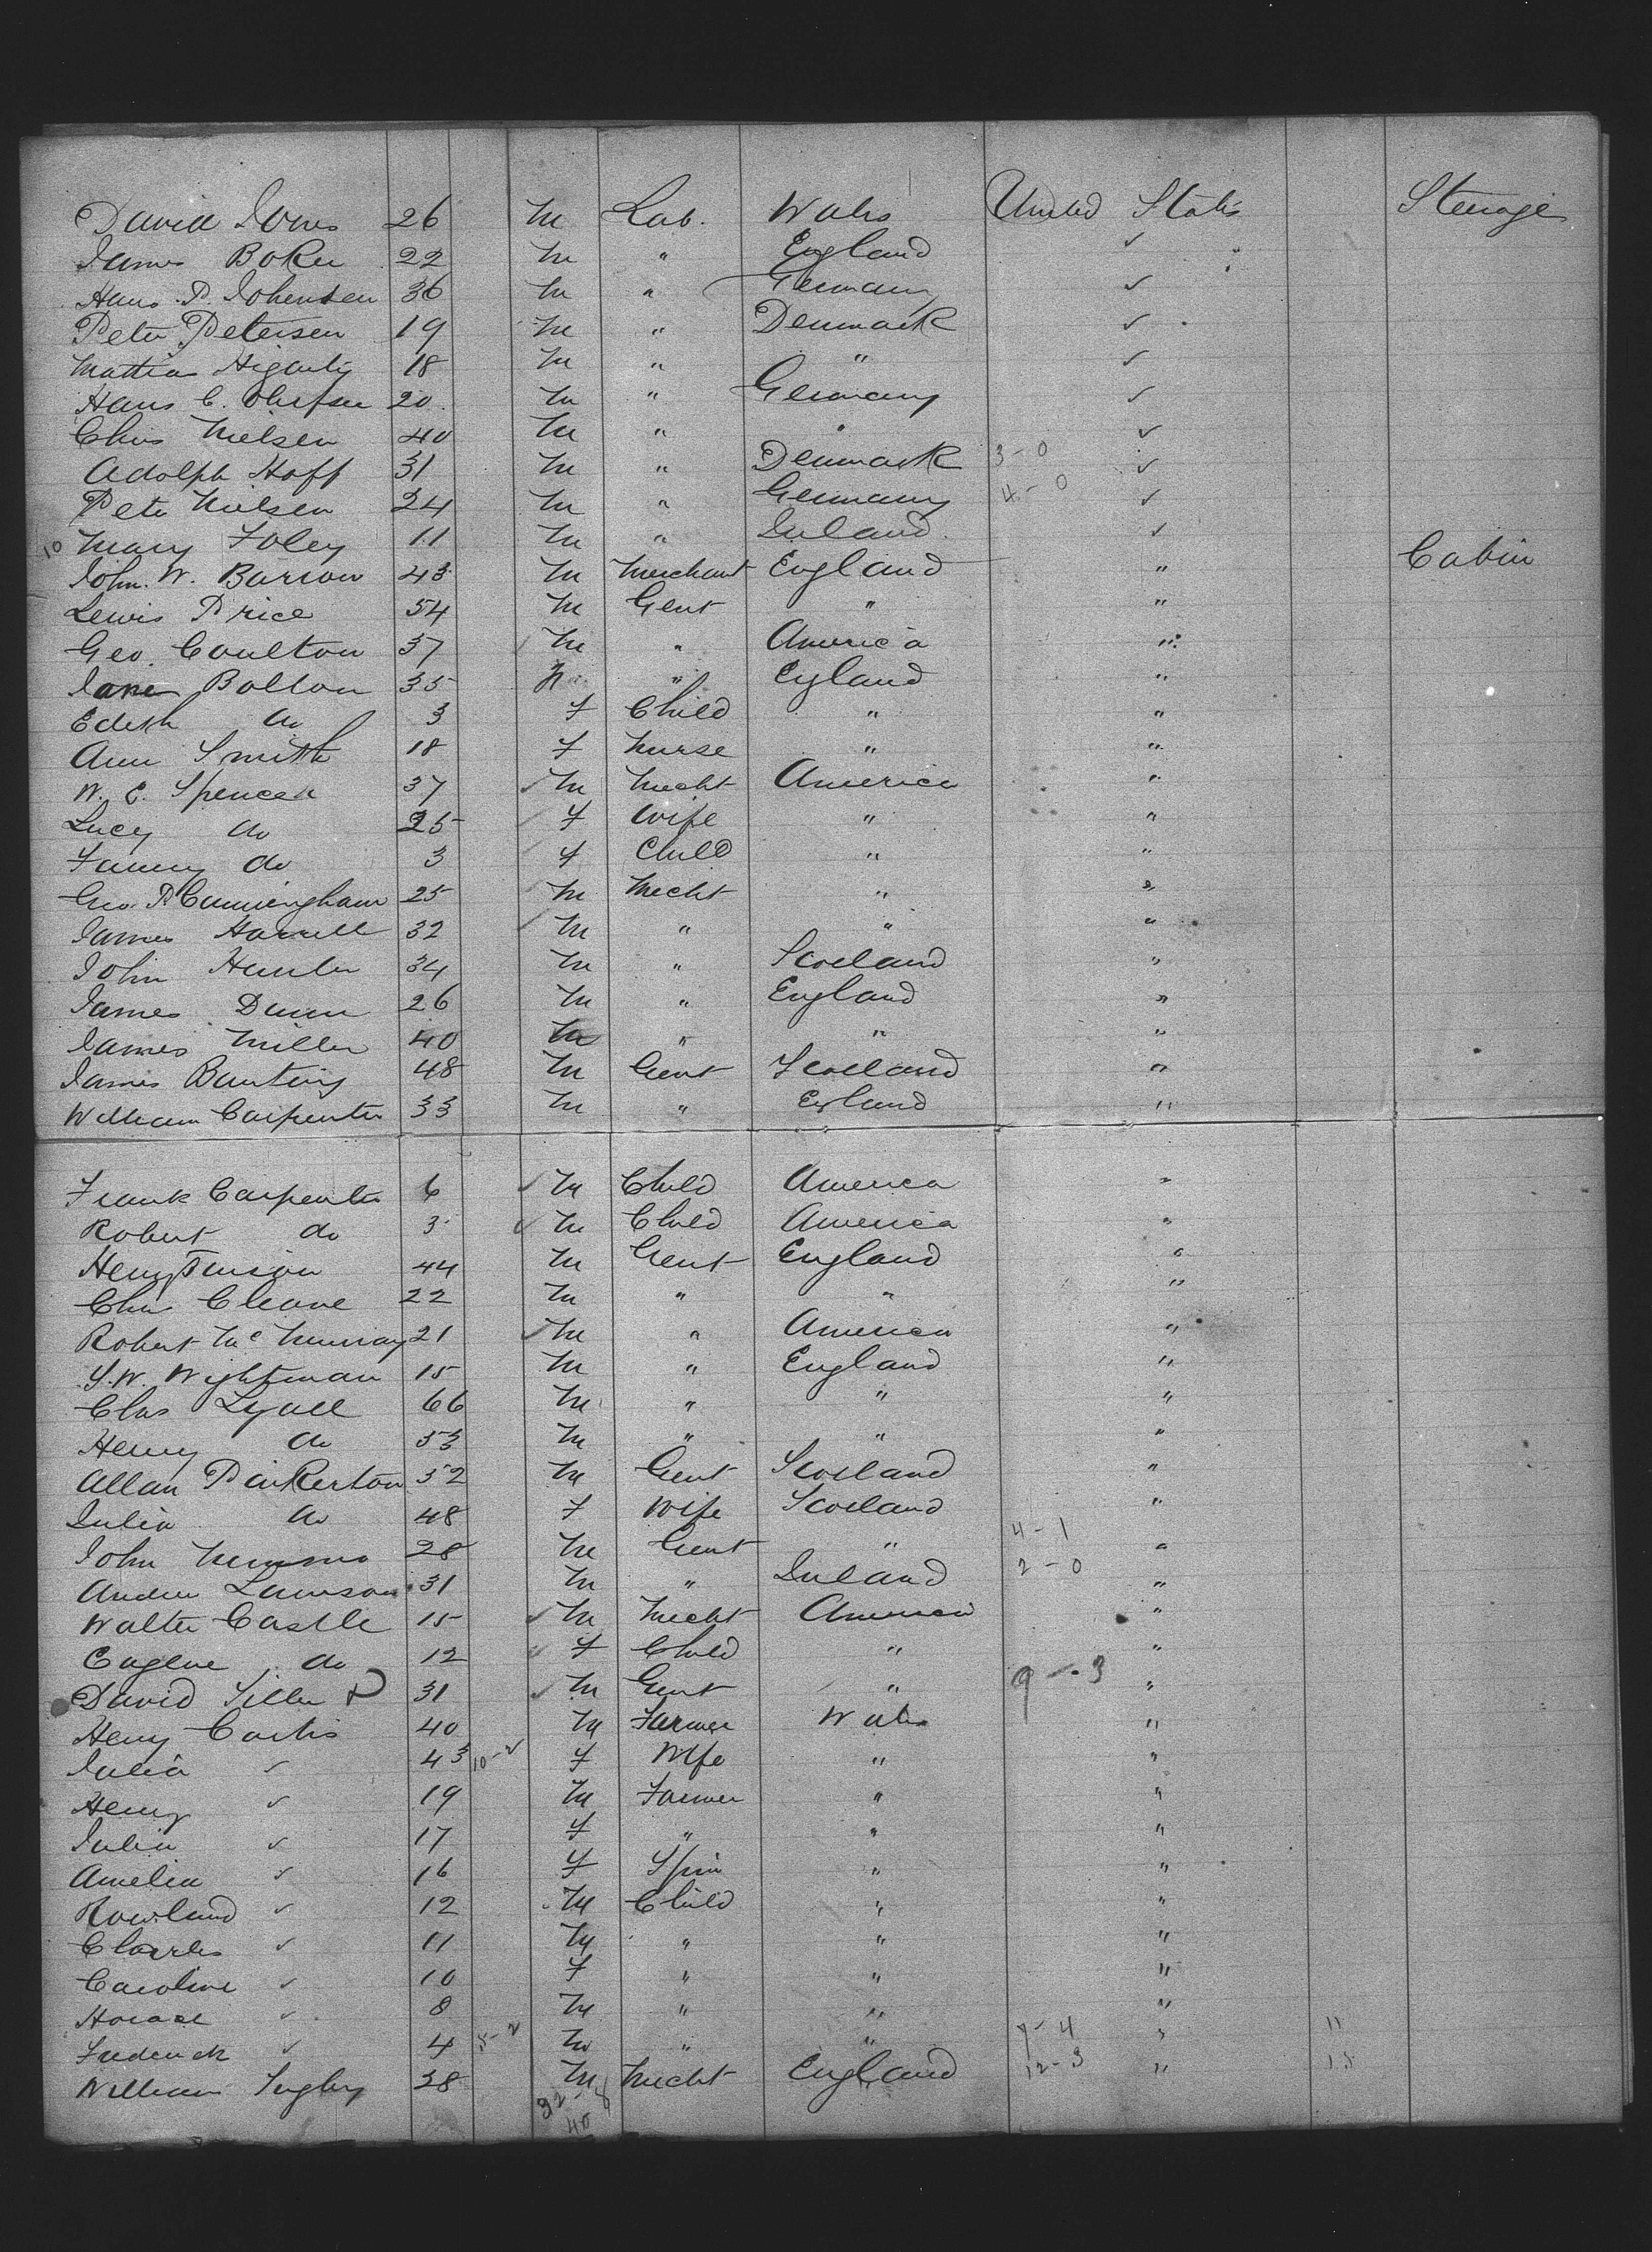 David Jones 26 M Lab. Wales United States Steerage
James Baker 22 M " England ✓
Hans P. Johensen 36 M " Germany ✓
Peter Petersen 19 M " Denmark ✓
Mattias 18 M " " ✓
Hans C. 20 M " Germany ✓
Chris Nielsen 40 M " " ✓
Adolph Hoff 31 M " Denmark 3-0 ✓
Peter Nielsen 24 M " Germany 4-0 ✓
10 Mary Foley 11 M " Ireland ✓
John. W. Barrow 43 M Merchant England " Cabin
Lewis Price 54 M Gent " "
Geo. Coulton 37 M " America "
Jane Bolton 35 " England "
Edith do 3 F Child " "
Ann Smith 18 F Nurse " "
W. E. Spencer 37 ✓ M Mercht America "
Lucy do 25 ✓ F Wife " "
Fanny do 3 ✓ F Child " "
Geo. P Cunningham 25 ✓ M Mercht " "
James Harrell 32 ✓ M " " "
John Hunter 34 M " Scotland "
James Dunn 26 M " England "
James Miller 40 M " " "
James Bunting 48 M Gent Scotland "
William Carpenter 33 M " England "
Frank Carpenter 6 ✓ M Child America "
Robert do 3 ✓ M Child America "
Henry 44 M Gent England "
Chas Cleave 22 M " " "
Robert McMurray 21 ✓ M " America "
S.W. Wightman 15 M " England "
Chas Lyall 66 M " " "
Henry do 53 M " " "
Allan Pinkerton 52 M Gent Scotland "
Julia do 48 F Wife Scotland "
John 28 M Gent " 4-1 "
Andrew Lawson 31 M " Ireland 2-0 "
Walter Castle 15 ✓ M Mercht American "
Eugene do 12 ✓ F Child " "
David 31 ✓ M Gent " 9-3 "
Henry Curtis 40 M Farmer Wales "
Julia ✓ 43 10-2 F Wife " "
Henry ✓ 19 M Farmer " "
Julia ✓ 17 F " " "
Amelia ✓ 16 F Spin " "
Rowland ✓ 12 M Child " "
Charles ✓ 11 M " " "
Caroline ✓ 10 F " " "
Horace ✓ 8 M " " "
Frederick ✓ 4 5-2 M " " 7-4 " 11
William 38 M Mercht England 12-3 " 15